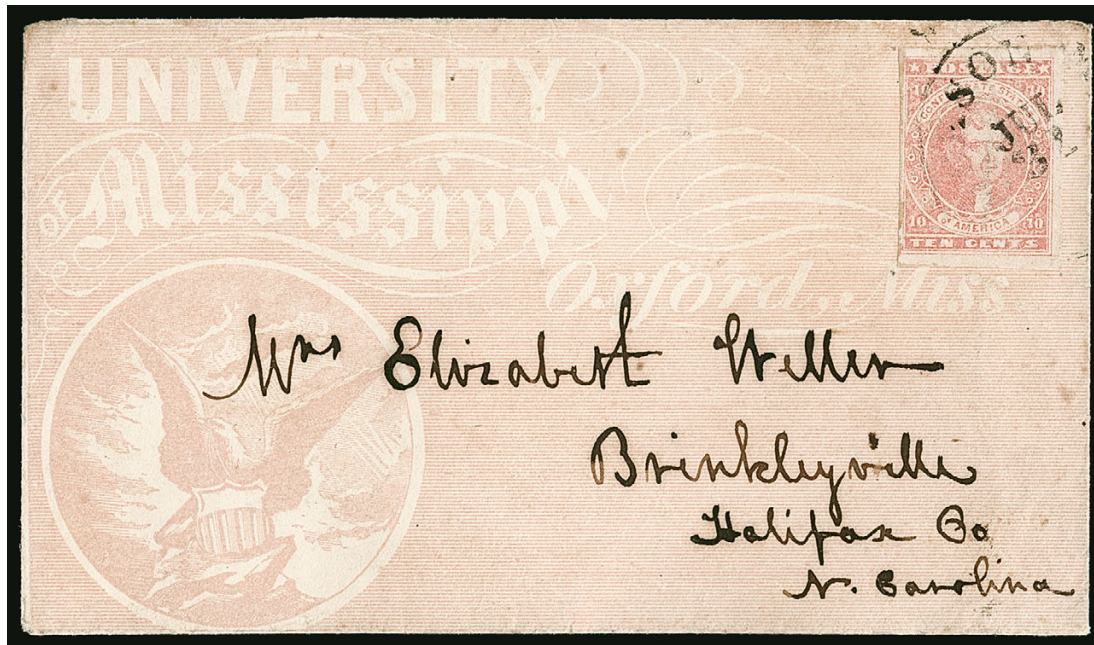 UNIVERSITY
OF Mississippi
Oxford, Miss.
POSTAGE
10 10
CONFEDERATE STATES
OF AMERICA
10 10
TEN CENTS
Mrs Elizabeth Weller
Brinkleyville
Halifax Co
N. Carolina